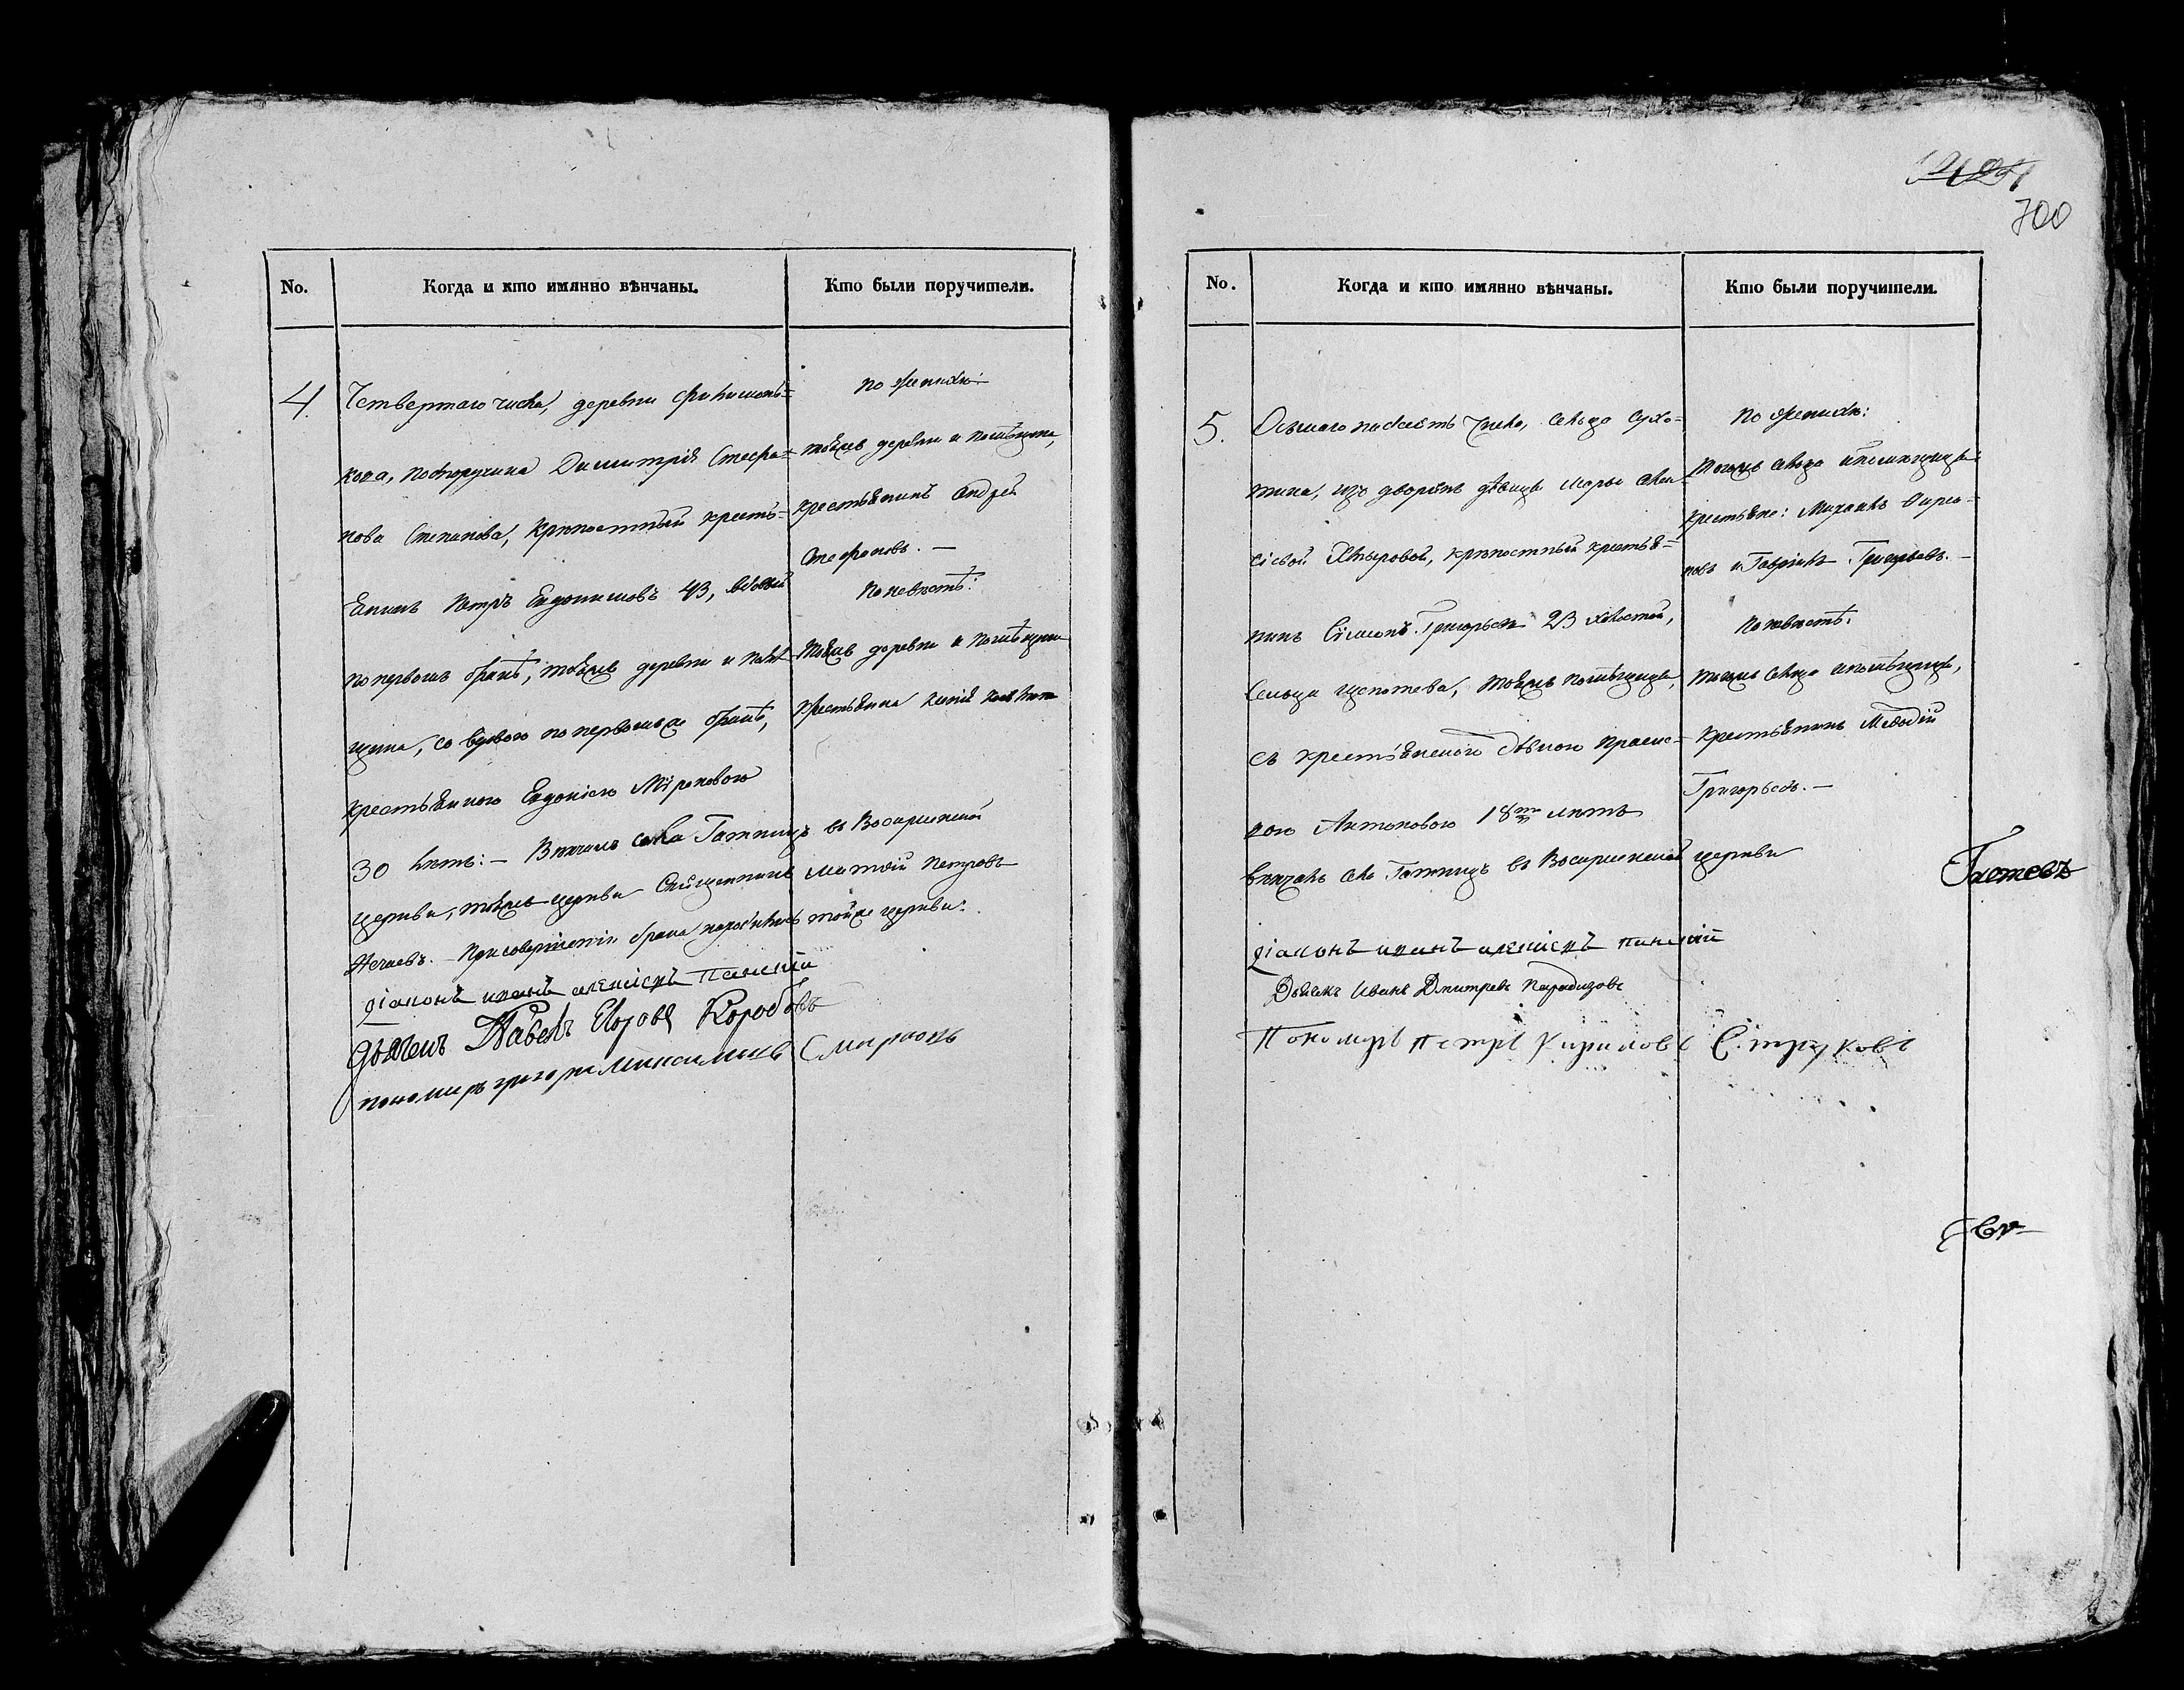 1421
700
No.
Когда и кто имянно вѣнчаны.
Кто были поручители.
4.
Четвертаго числа, деревни
кова, подпоручика Димитрія Стефа=
нова Степанова, крѣпостный кресть=
янинъ Петръ Евдокимовъ 43, вдовый
по первомъ бракѣ, тояжъ деревни и помѣ
щика, со вдовою по первомъ же бракѣ,
крестьянкою Евдокіею Мѵроновою
30 лѣтъ: — Вѣнчалъ села Гатницъ въ Воскресенской
церкви, тояжъ церкви Священникъ Матѳій Петровъ
Нечаевъ. — При совершеніи брака находились тойже церкви:
діаконъ иванъ алексіевъ
дьячекъ Павелъ Егоровъ Коробовъ
пономарь григорій Максимовъ Смирновъ
по женихѣ:
тояжъ деревни и помѣщика,
крестьянинъ Андрей
Стефановъ. —
По невѣстѣ:
тояжъ деревни и помѣщика
крестьянинъ
No.
Когда и кто имянно вѣнчаны.
Кто были поручители.
5.
Осьмаго надесять числа, сельца Сухо=
тина, изъ дворянъ дѣвицы Марьи Алек=
сіевой Хвыровой, крѣпостный крестья=
нинъ Сімеонъ Григорьевъ 23 холостой,
сельца Щепотева, тояжъ помѣщицы,
съ крестьянскою дѣвкою Праско=
вою Антоновою 18ти лѣтъ
вѣнчалъ села Гатницъ въ Воскресенской церкви
діаконъ иванъ алексіевъ
Дьячекъ Иванъ Дмитревъ Парадизовъ
Пономарь петръ Кириловъ Струковъ
По женихѣ:
тогожъ сельца и помѣщицы
крестьяне: Михаилъ
новъ и Гаврилъ Григорьевъ. —
По невѣстѣ:
тогожъ сельца и помѣщицы,
крестьянинъ Меѳодій
Григорьевъ. —